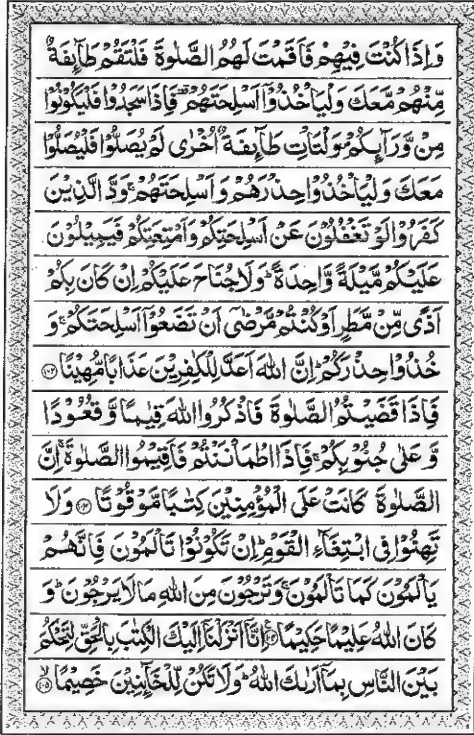 وَاِذَا كُنْتَ فِيْهِمْ فَاَقَمْتَ لَهُمُ الصَّلٰوةَ فَلْتَقُمْ طَآئِفَةٌ
مِّنْهُمْ مَّعَكَ وَلْيَاْخُذُوْٓا اَسْلِحَتَهُمْ ۫ فَاِذَا سَجَدُوْا فَلْيَكُوْنُوْا
مِنْ وَّرَآئِكُمْ ۪ وَلْتَاْتِ طَآئِفَةٌ اُخْرٰى لَمْ يُصَلُّوْا فَلْيُصَلُّوْا
مَعَكَ وَلْيَاْخُذُوْا حِذْرَهُمْ وَاَسْلِحَتَهُمْ ۚ وَدَّ الَّذِيْنَ
كَفَرُوْا لَوْ تَغْفُلُوْنَ عَنْ اَسْلِحَتِكُمْ وَاَمْتِعَتِكُمْ فَيَمِيْلُوْنَ
عَلَيْكُمْ مَّيْلَةً وَّاحِدَةً ؕ وَلَا جُنَاحَ عَلَيْكُمْ اِنْ كَانَ بِكُمْ
اَذًى مِّنْ مَّطَرٍ اَوْ كُنْتُمْ مَّرْضٰٓى اَنْ تَضَعُوْٓا اَسْلِحَتَكُمْ ۚ وَ
خُذُوْا حِذْرَكُمْ ؕ اِنَّ اللّٰهَ اَعَدَّ لِلْكٰفِرِيْنَ عَذَابًا مُّهِيْنًا ۝۱۰۲
فَاِذَا قَضَيْتُمُ الصَّلٰوةَ فَاذْكُرُوا اللّٰهَ قِيٰمًا وَّقُعُوْدًا
وَّعَلٰى جُنُوْبِكُمْ ۚ فَاِذَا اطْمَاْنَنْتُمْ فَاَقِيْمُوا الصَّلٰوةَ ۚ اِنَّ
الصَّلٰوةَ كَانَتْ عَلَى الْمُؤْمِنِيْنَ كِتٰبًا مَّوْقُوْتًا ۝۱۰۳ وَلَا
تَهِنُوْا فِى ابْتِغَآءِ الْقَوْمِ ؕ اِنْ تَكُوْنُوْا تَاْلَمُوْنَ فَاِنَّهُمْ
يَاْلَمُوْنَ كَمَا تَاْلَمُوْنَ ۚ وَتَرْجُوْنَ مِنَ اللّٰهِ مَا لَا يَرْجُوْنَ ؕ وَ
كَانَ اللّٰهُ عَلِيْمًا حَكِيْمًا ۝۱۰۴ اِنَّآ اَنْزَلْنَآ اِلَيْكَ الْكِتٰبَ بِالْحَقِّ لِتَحْكُمَ
بَيْنَ النَّاسِ بِمَآ اَرٰىكَ اللّٰهُ ؕ وَلَا تَكُنْ لِّلْخَآئِنِيْنَ خَصِيْمًا ۝۱۰۵